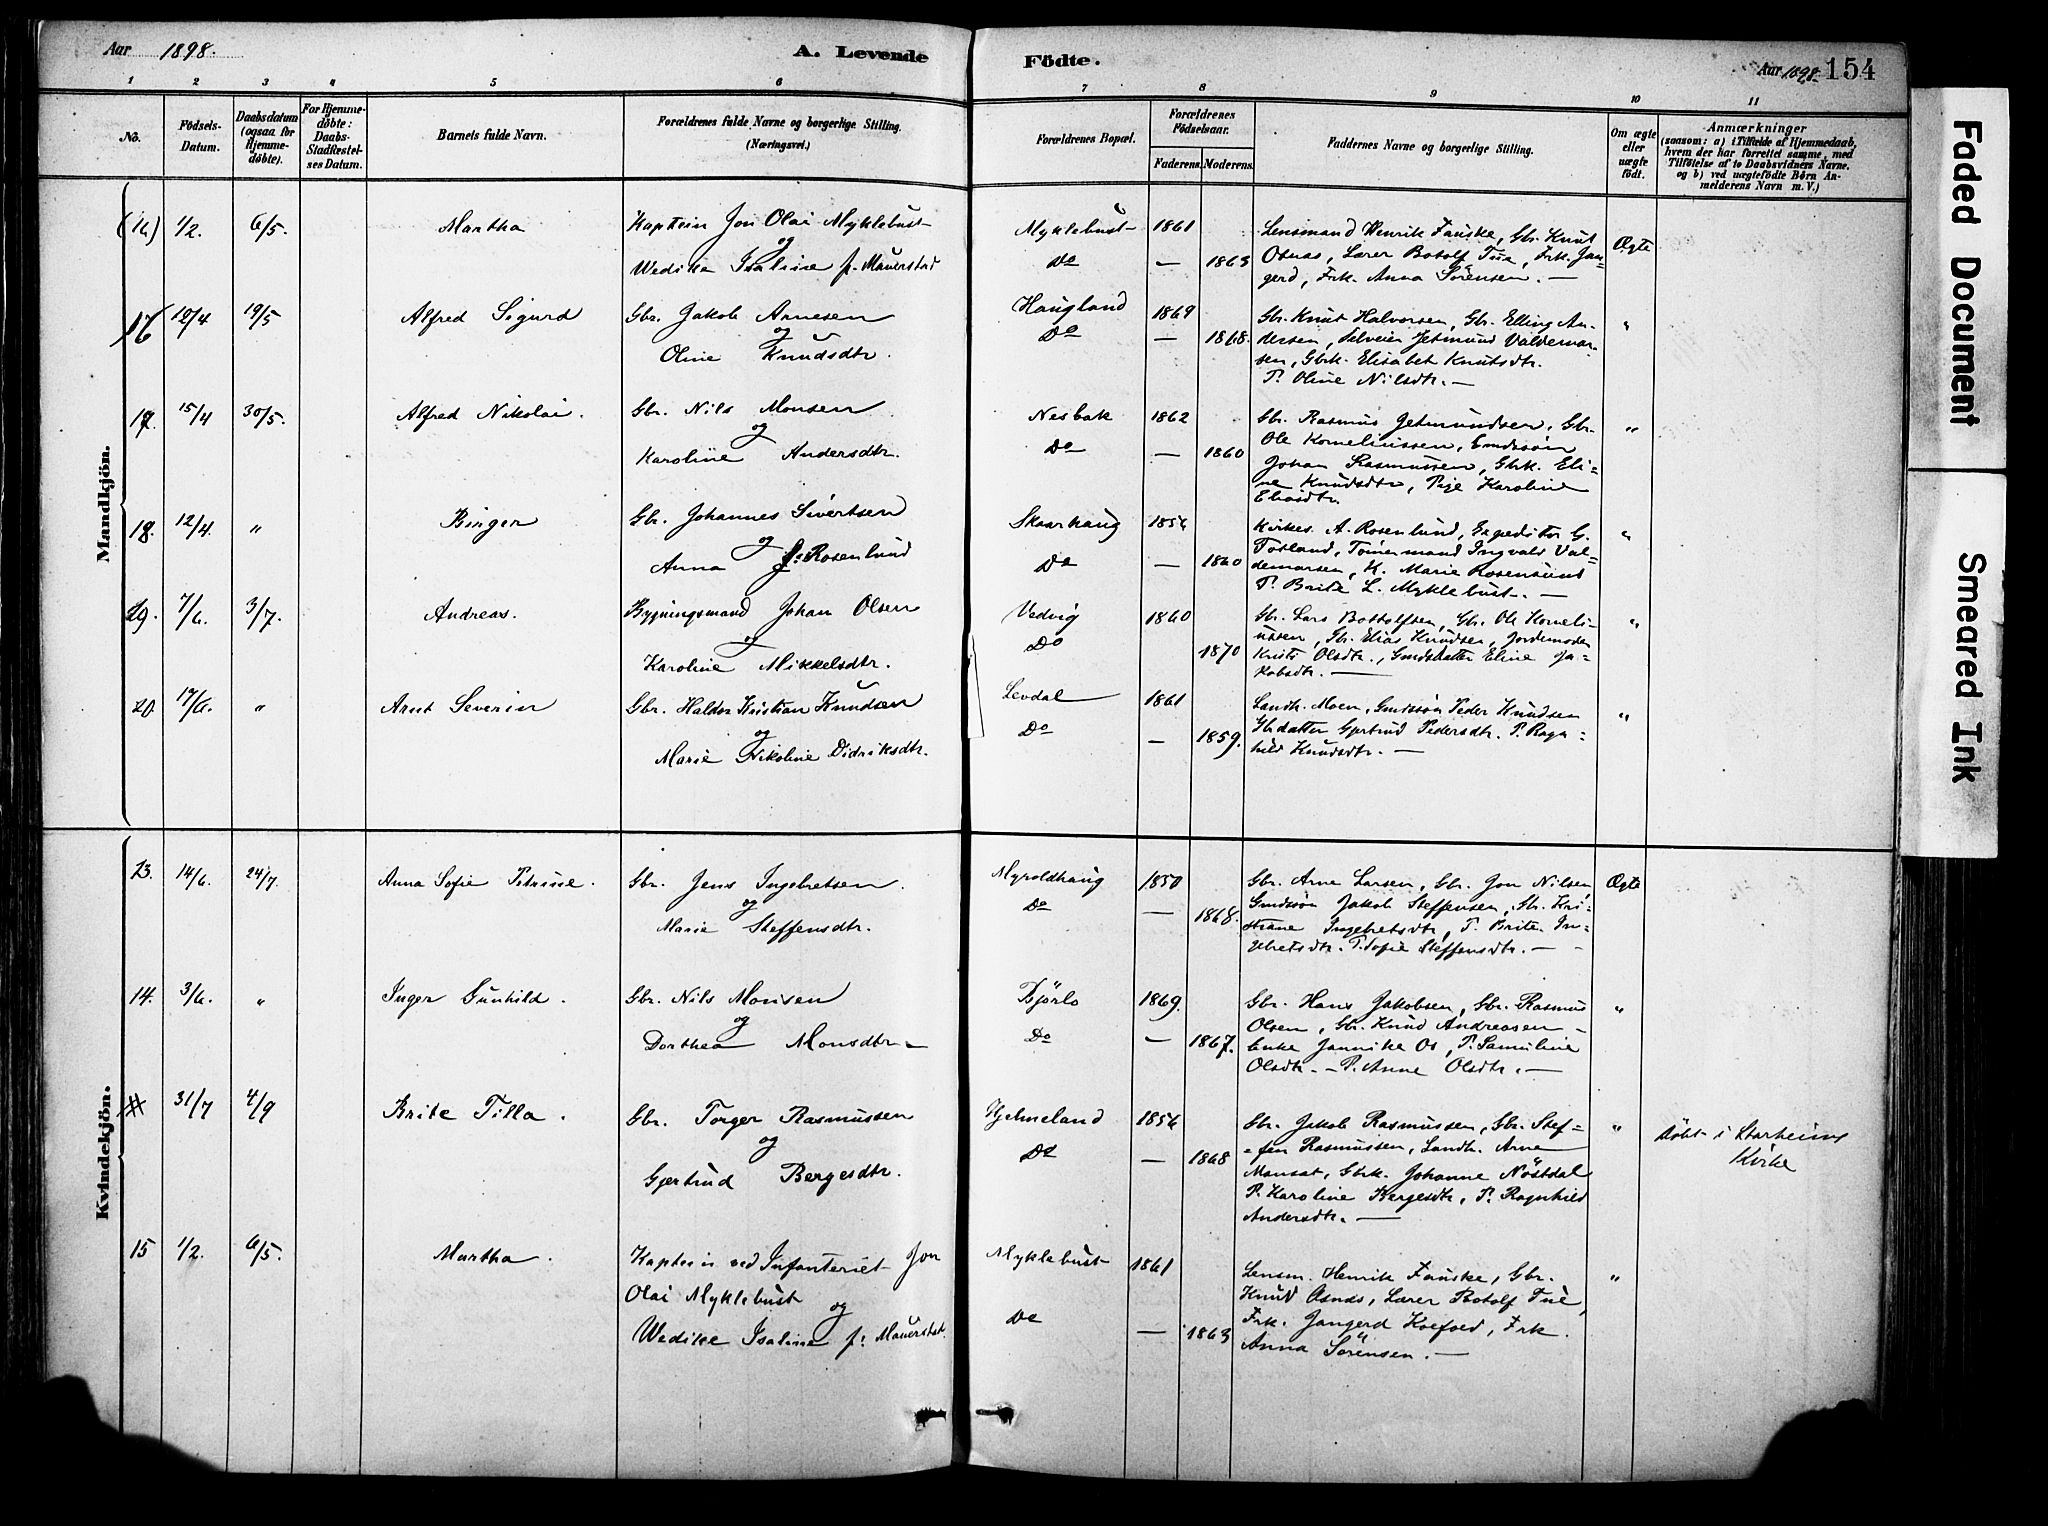 Aar 1898.
A. Levende Födte.
Aar 1898. 154
1 2 3 4 5 6 7 8 9 10 11
No.
Födsels-Datum.
Daabsdatum (ogsaa for Hjemmedøbte).
For Hjemmedøbte: Daabs-Stadfæstelses Datum.
Barnets fulde Navn.
Forældrenes fulde Navne og borgerlige Stilling. (Næringsvei.)
Forældrenes Bopæl.
Forældrenes Fødselsaar.
Faderens. Moderens.
Faddernes Navne og borgerlige Stilling.
Om ægte eller uægte födt.
Anmærkninger
(saasom: a) i Tilfælde af Hjemmedaab,
hvem der har forrettet samme, med
Tilföielse af to Daabsvidners Navne.
og b) ved uægtefödte Børn An-
melderens Navn m. V.)
Mandkjön.
(16) 1/2. 6/5. Martha
Kaptein Jon Olai Myklebust
og
Wedike Isaline f. Mauerstad
Myklebust
Do
1861
— 1863
Lensmand Henrik Fauske, Gbr. Knut
Osnes, Lærer Botolf Tue, Frk. Jan-
gerd, Frk. Anna Sørensen. —
Ægte
16 12/4 19/5 Alfred Sigurd
Gbr. Jakob Arnesen
og
Oline Knudsdtr.
Haugland
Do
1869
— 1868.
Gbr. Knut Halvorsen, Gbr. Elling An-
dersen, Selveier Jetmund Valdemar-
sen, Gbrk. Elisabet Knutsdtr.
P. Oline Nilsdtr. —
"
17. 15/4 30/5. Alfred Nikolai.
Gbr. Nils Monsen
og
Karoline Andersdtr.
Nesbak
Do
1862
— 1860
Gbr. Rasmus Jetmundsen, Gbr.
Ole Korneliussen, Gmdssøn
Johan Rasmussen, Gbrk. Eli-
ne Knudsdtr, Pige Karoline
Eliasdtr.
"
18. 12/4. " Birger
Gbr. Johannes Sivertsen
og
Anna f. Rosenlund
Skaarhaug
Do
1854
— 1860
Kirkes. A. Rosenlund, Expeditør G.
Tosland, Tømmermand Ingvald Val-
demarsen, K. Marie Rosenlund
P. Brite L. Myklebust. —
"
19. 7/6. 3/7. Andreas.
Bygningsmand Johan Olsen
og
Karoline Mikkelsdtr.
Vedvig
Do
1860
1870
Gbr. Lars Bottolfsen, Gbr. Ole Korneli-
ussen, Gbr. Elias Knudsen, Jordemoder
Kristi Olsdtr., Gmdsdatter Eline Ja-
kobsdtr. —
"
20 17/6. " Arnt Severin
Gbr. Haldor Kristian Knudsen
og
Marie Nikoline Didriksdtr.
Levdal
Do
1861
— 1859.
Landh. Moen, Gmdssøn Peder Knudsen
Gbrdatter Gjertrud Pedersdtr. P. Ragn-
hild Knudsdtr. —
"
Kvindekjön.
13. 14/6. 24/7. Anna Sofie Petrine.
Gbr. Jens Ingebretsen.
og
Marie Steffensdtr.
Myroldhaug
Do
1850
— 1868.
Gbr. Arne Larsen, Gbr. Jon Nilsen,
Gmdssøn Jakob Steffensen, Gbr. Kri-
stiane Ingebretsdtr, P. Brite In-
gebretsdtr. P. Sofie Steffensdtr. —
Ægte
14. 3/6. " Inger Gunhild.
Gbr. Nils Monsen
og
Dorthea Monsdtr —
Bjørlo
Do
1869.
— 1867.
Gbr. Hans Jakobsen, Gbr. Rasmus
Olsen, Gbr. Knud Andreasen —
Enke Jannike Os, P. Samuline
Olsdtr. — P. Anne Olsdtr. —
"
31/7 4/9 Brite Tilla.
Gbr. Torger Rasmussen
og
Gjertrud Bergesdtr.
Hjelmeland
Do
1854
— 1868
Gbr. Jakob Rasmussen, Gbr. Stef-
fen Rasmussen, Landh. Arne
Monsat, Gbrk. Johanne Nöstdal
P. Karoline Bergesdtr, P. Ragnhild
Andersdtr. —
"
Döbt i Starheims
Kirke
15 1/2. 6/5. Martha.
Kaptein ved Infanteriet Jon
Olai Myklebust
og
Wedike Isaline f. Mauerstad.
Myklebust
Do
1861
— 1863
Lensm. Henrik Fauske, Gbr.
Knud Osnes, Lærer Botolf Tue,
Frk. Jangerd Koefoed, Frk.
Anna Sörensen. —
"
Faded Document
Smeared Ink